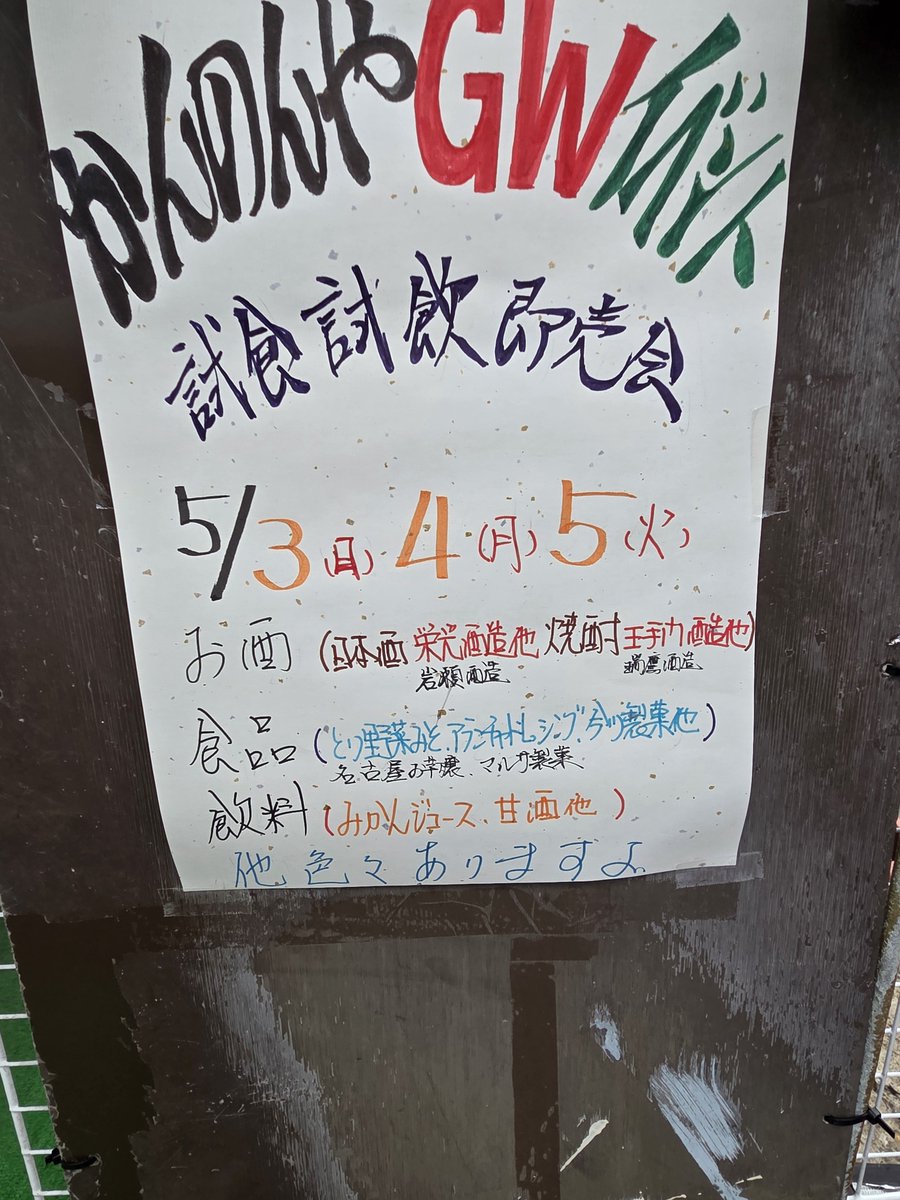 かんのんやGWイベント
試食試飲即売会
5/3(日)4(月)5(火)
お酒(日本酒 栄光酒造他 焼酎 王手門酒造他)
岩瀬酒造 瑞鷹酒造
食品(とり野菜みそ、アランチャドレッシング、今川製菓他)
名古屋お芋醸、マルサ製菓
飲料(みかんジュース、甘酒他)
他色々ありますよ